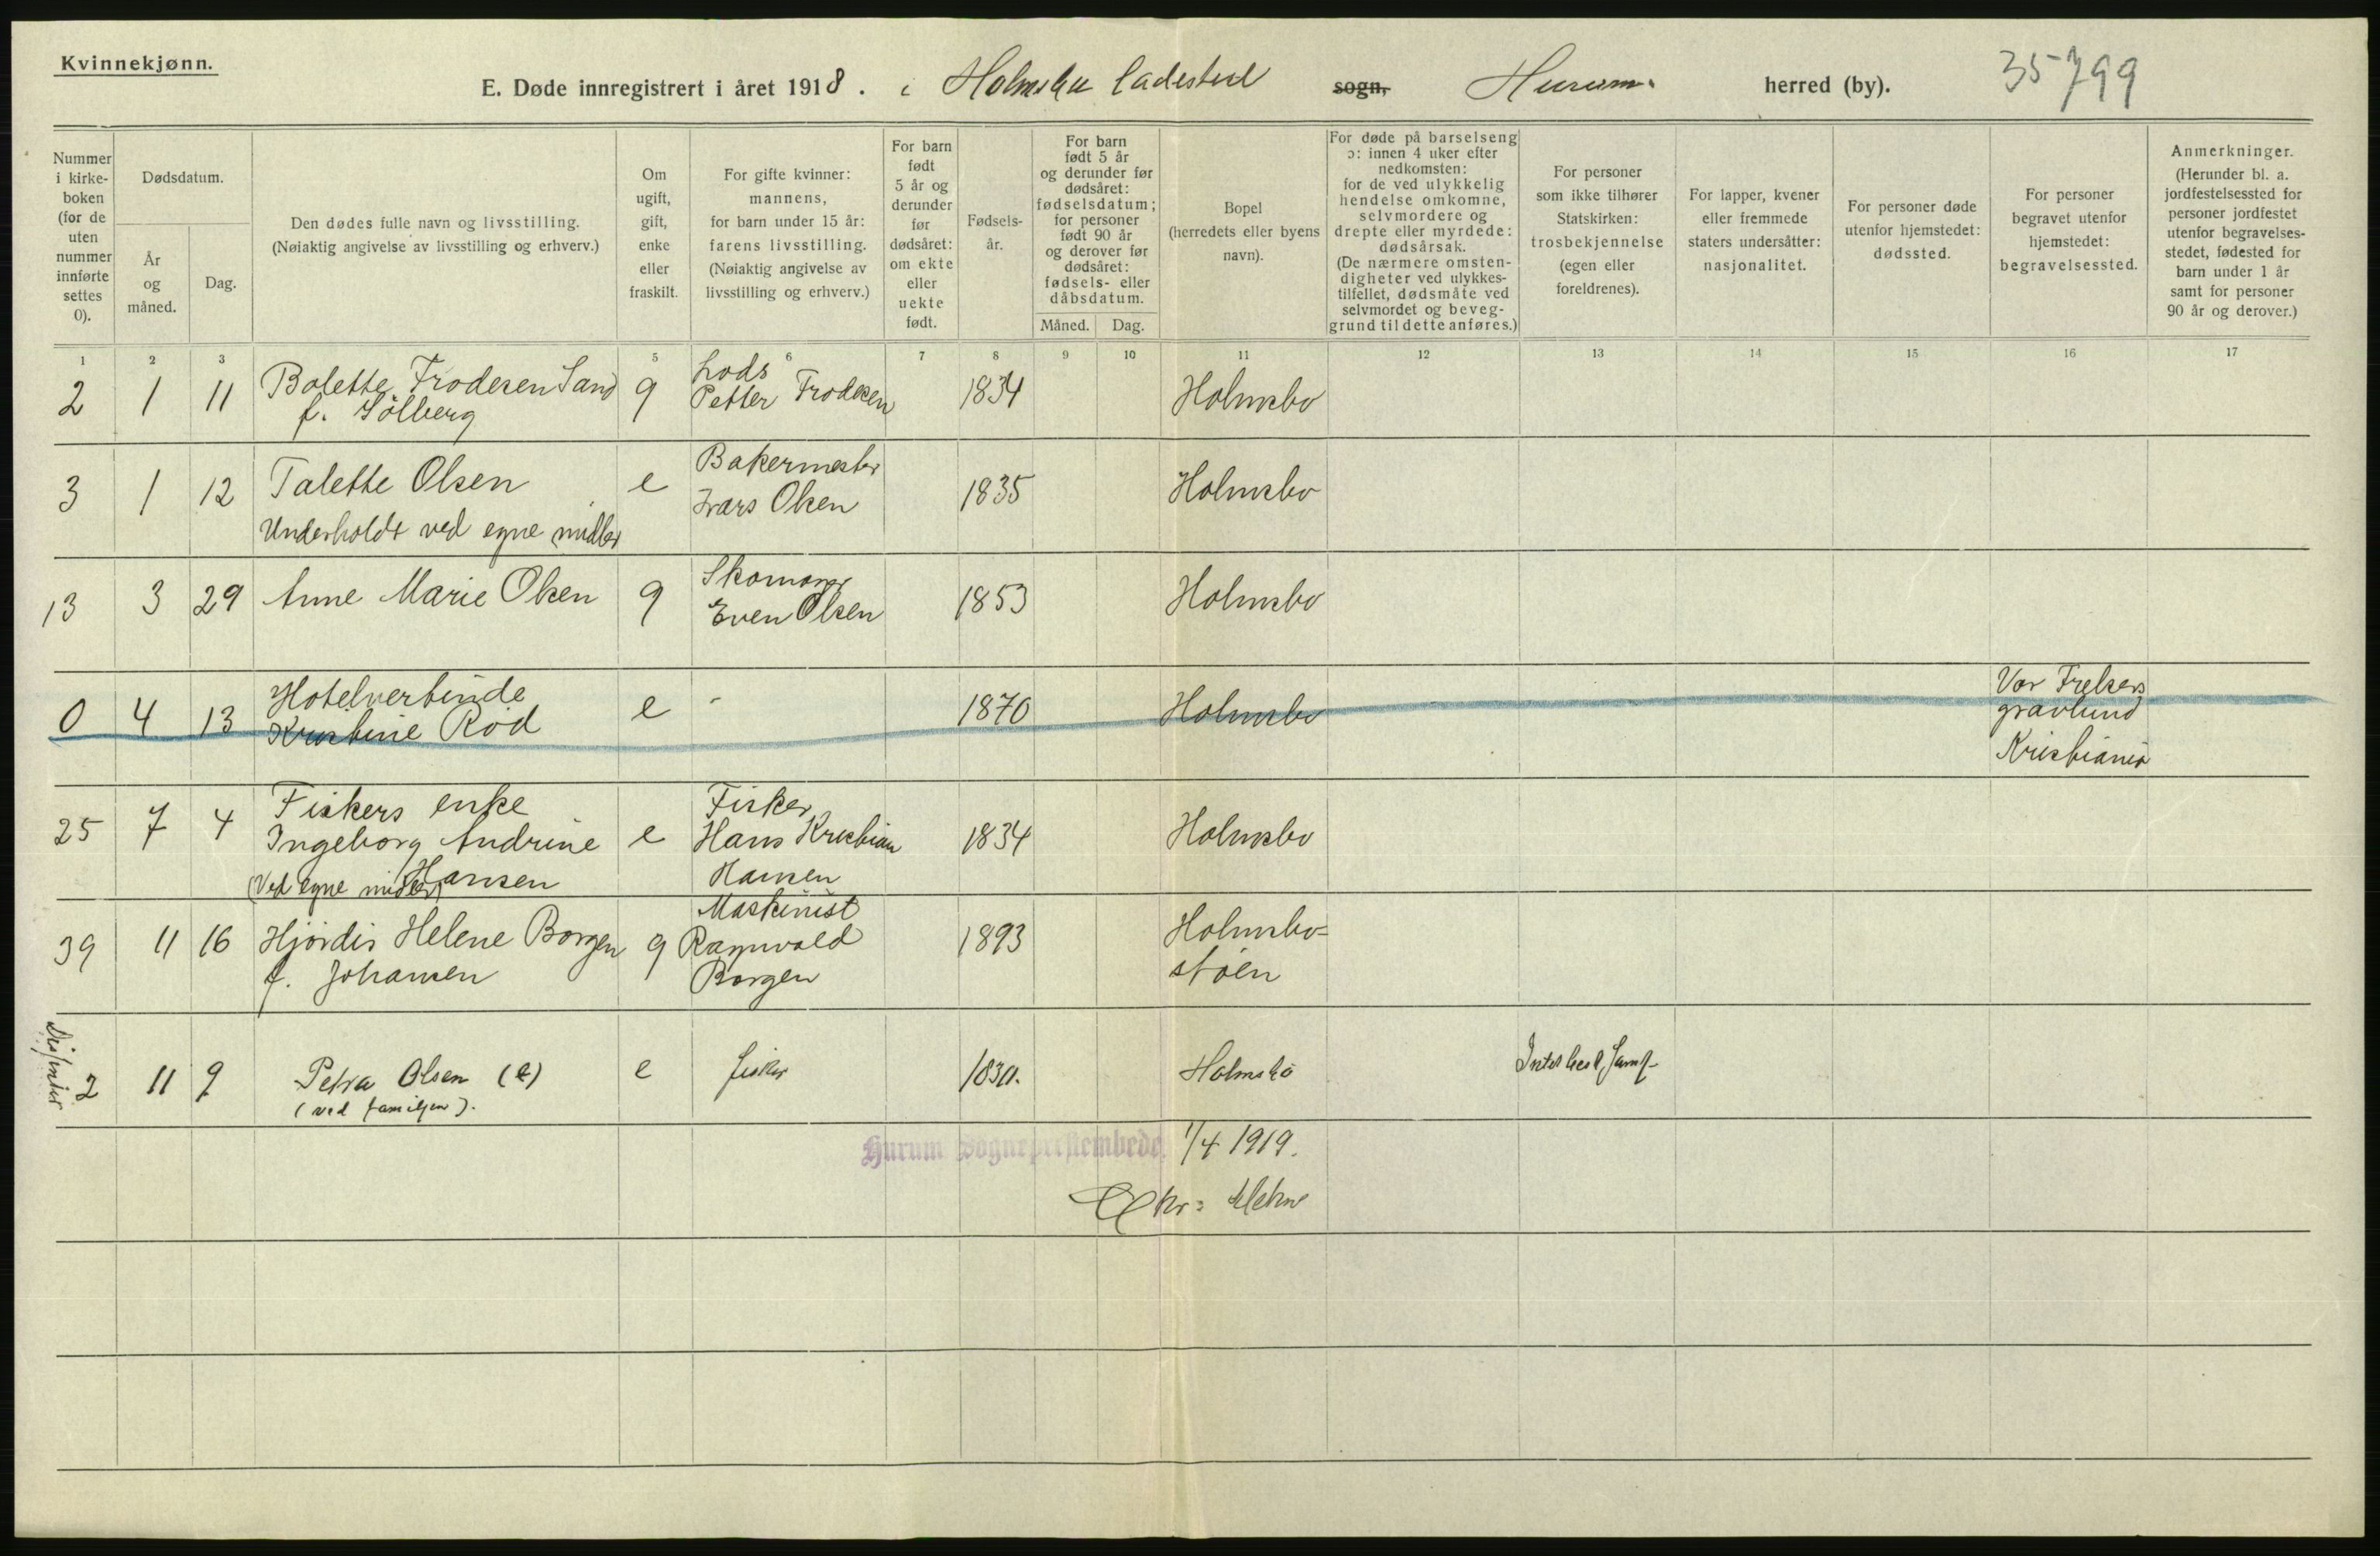 Kvinnekjønn.
E. Døde innregistrert i året 1918. i Holmsbu ladested sogn, Hurum. herred (by). 35799
Nummer i kirke-boken (for de uten nummer innførte settes 0).
Dødsdatum.
År og måned.
Dag.
Den dødes fulle navn og livsstilling.
(Nøiaktig angivelse av livsstilling og erhverv.)
Om ugift, gift, enke eller fraskilt.
For gifte kvinner: mannens, for barn under 15 år: farens livsstilling. (Nøiaktig angivelse av livsstilling og erhverv.)
For barn født 5 år og derunder før dødsåret: om ekte eller uekte født.
Fødsels-år.
For barn født 5 år og derunder før dødsåret: fødselsdatum; for personer født 90 år og derover før dødsåret: fødsels- eller dåbsdatum.
Måned.
Dag.
Bopel (herredets eller byens navn).
For døde på barselseng ɔ: innen 4 uker efter nedkomsten: for de ved ulykkelig hendelse omkomne, selvmordere og drepte eller myrdede: dødsårsak. (De nærmere omsten-digheter ved ulykkes-tilfellet, dødsmåte ved selvmordet og beveg-grund til dette anføres.)
For personer som ikke tilhører Statskirken: trosbekjennelse (egen eller foreldrenes).
For lapper, kvener eller fremmede staters undersåtter: nasjonalitet.
For personer døde utenfor hjemstedet: dødssted.
For personer begravet utenfor hjemstedet: begravelsessted.
Anmerkninger. (Herunder bl. a. jordfestelsessted for personer jordfestet utenfor begravelses-stedet, fødested for barn under 1 år samt for personer 90 år og derover.)
1 2 3 5 6 7 8 9 10 11 12 13 14 15 16 17
2 1 11 Bolette Frodesen Sand g Lods 1834 Holmsbo
f. Sølberg Petter Frodesen
3 1 12 Talette Olsen e Bakermester 1835 Holmsbo
Ivars Olsen
Underholdt ved egne midler
13 3 29 Anne Marie Olsen g Skomager 1853 Holmsbo
Even Olsen
0 4 13 Hotelvertinde e - 1870 Holmsbo Vor Frelsers
Kristine Rød gravlund
Kristiania
25 7 4 Fiskers enke e Fisker 1834 Holmsbo
Ingeborg Andrine Hans Kristian
(Ved egne midler) Hansen Hansen
39 11 16 Hjørdis Helene Borgen g Maskinist 1893 Holmsbo-
f. Johansen Ragnvald støen
Borgen
2 11 9 Petra Olsen (e) e fisker 1830. Holmsbo
(ved familjen).
Hurum Sogneprestembede. 1/4 1919.
Chr: